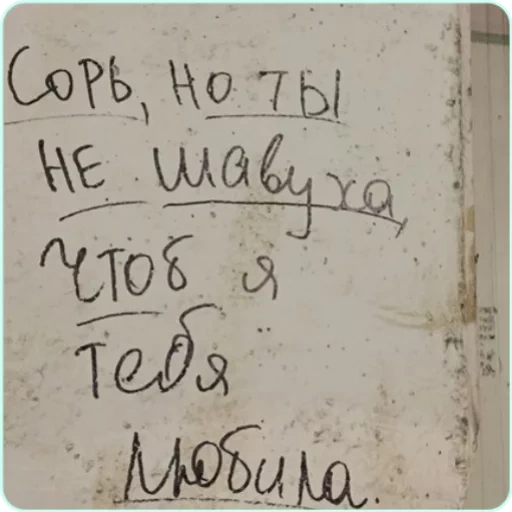 Сорь, но ты
не шавуха,
чтоб я
тебя
любила.